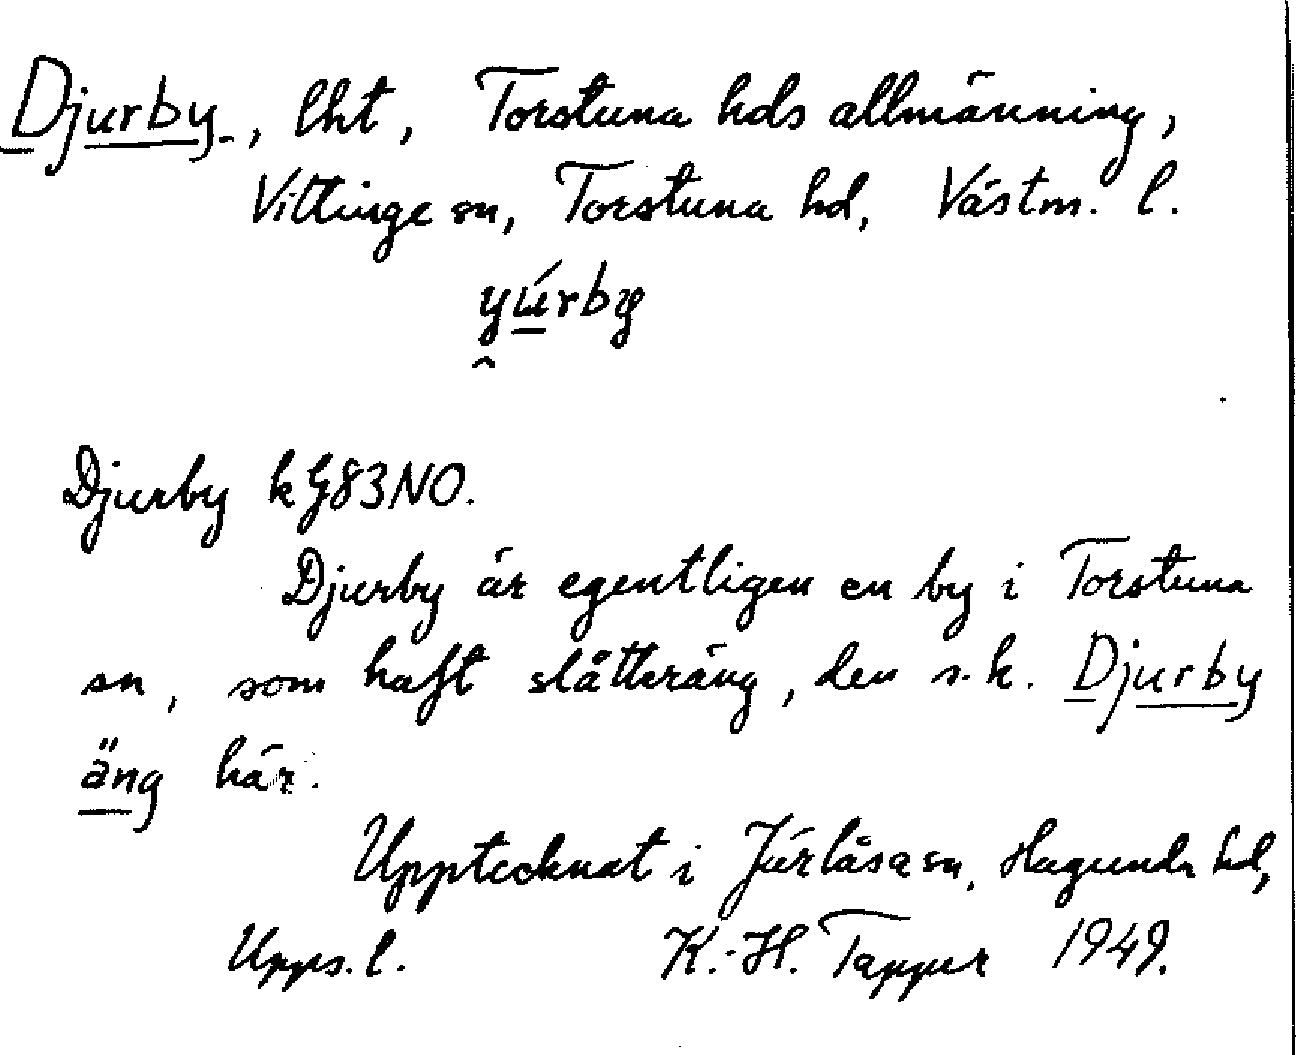 Djurby-, lht, Torstuna hds allmänning,
Vittinge sn, Torstuna hd, Västm. l.
yúrby
Djurby kG83NO.
Djurby är egentligen en by i Torstuna
sn, som haft slåtteräng, den s.k. Djurby
äng här.
Upptecknat i Järlåsa sn, Hagunda hd,
Upps. l. K.-H. Tapper 1949.